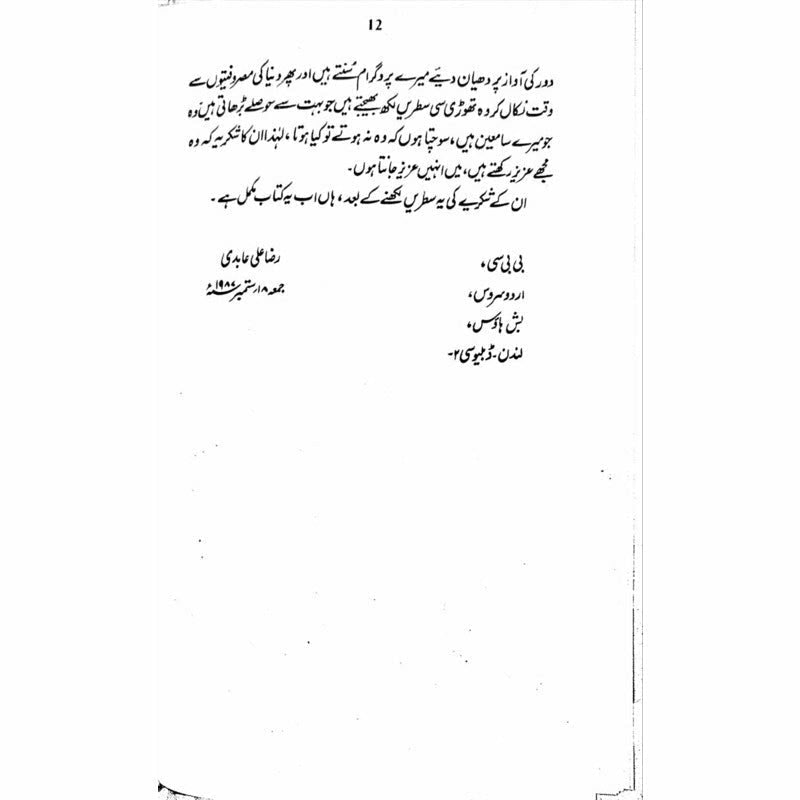 12
دور کی آواز پر دھیان دیئے میرے پروگرام سُنتے ہیں اور پھر دنیا کی مصروفیتوں سے
وقت نکال کر وہ تھوڑی سی سطریں لکھ بھیجتے ہیں جو بہت سے حوصلے بڑھاتی ہیں، وہ
جو میرے سامعین ہیں، سوچتا ہوں کہ وہ نہ ہوتے تو کیا ہوتا، لہٰذا ان کا شکریہ کہ وہ
مجھے عزیز رکھتے ہیں، میں انہیں عزیز جانتا ہوں۔
ان کے شکریے کی یہ سطریں لکھنے کے بعد، ہاں اب یہ کتاب مکمل ہے۔
بی بی سی، رضا علی عابدی
اردو سروس، جمعہ ۱۸ ستمبر ۱۹۸۷ء
بش ہاؤس،
لندن۔ ڈبلیو سی ۲۔